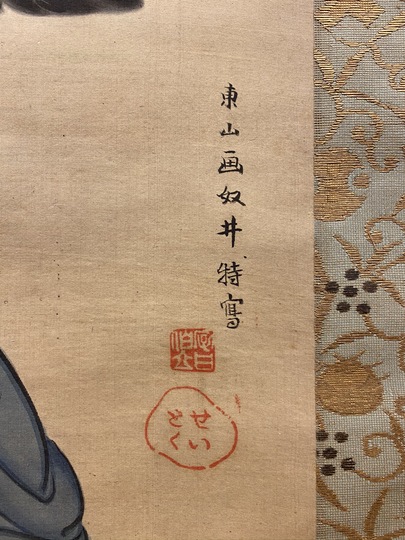 東山画奴井特寫
せいとく